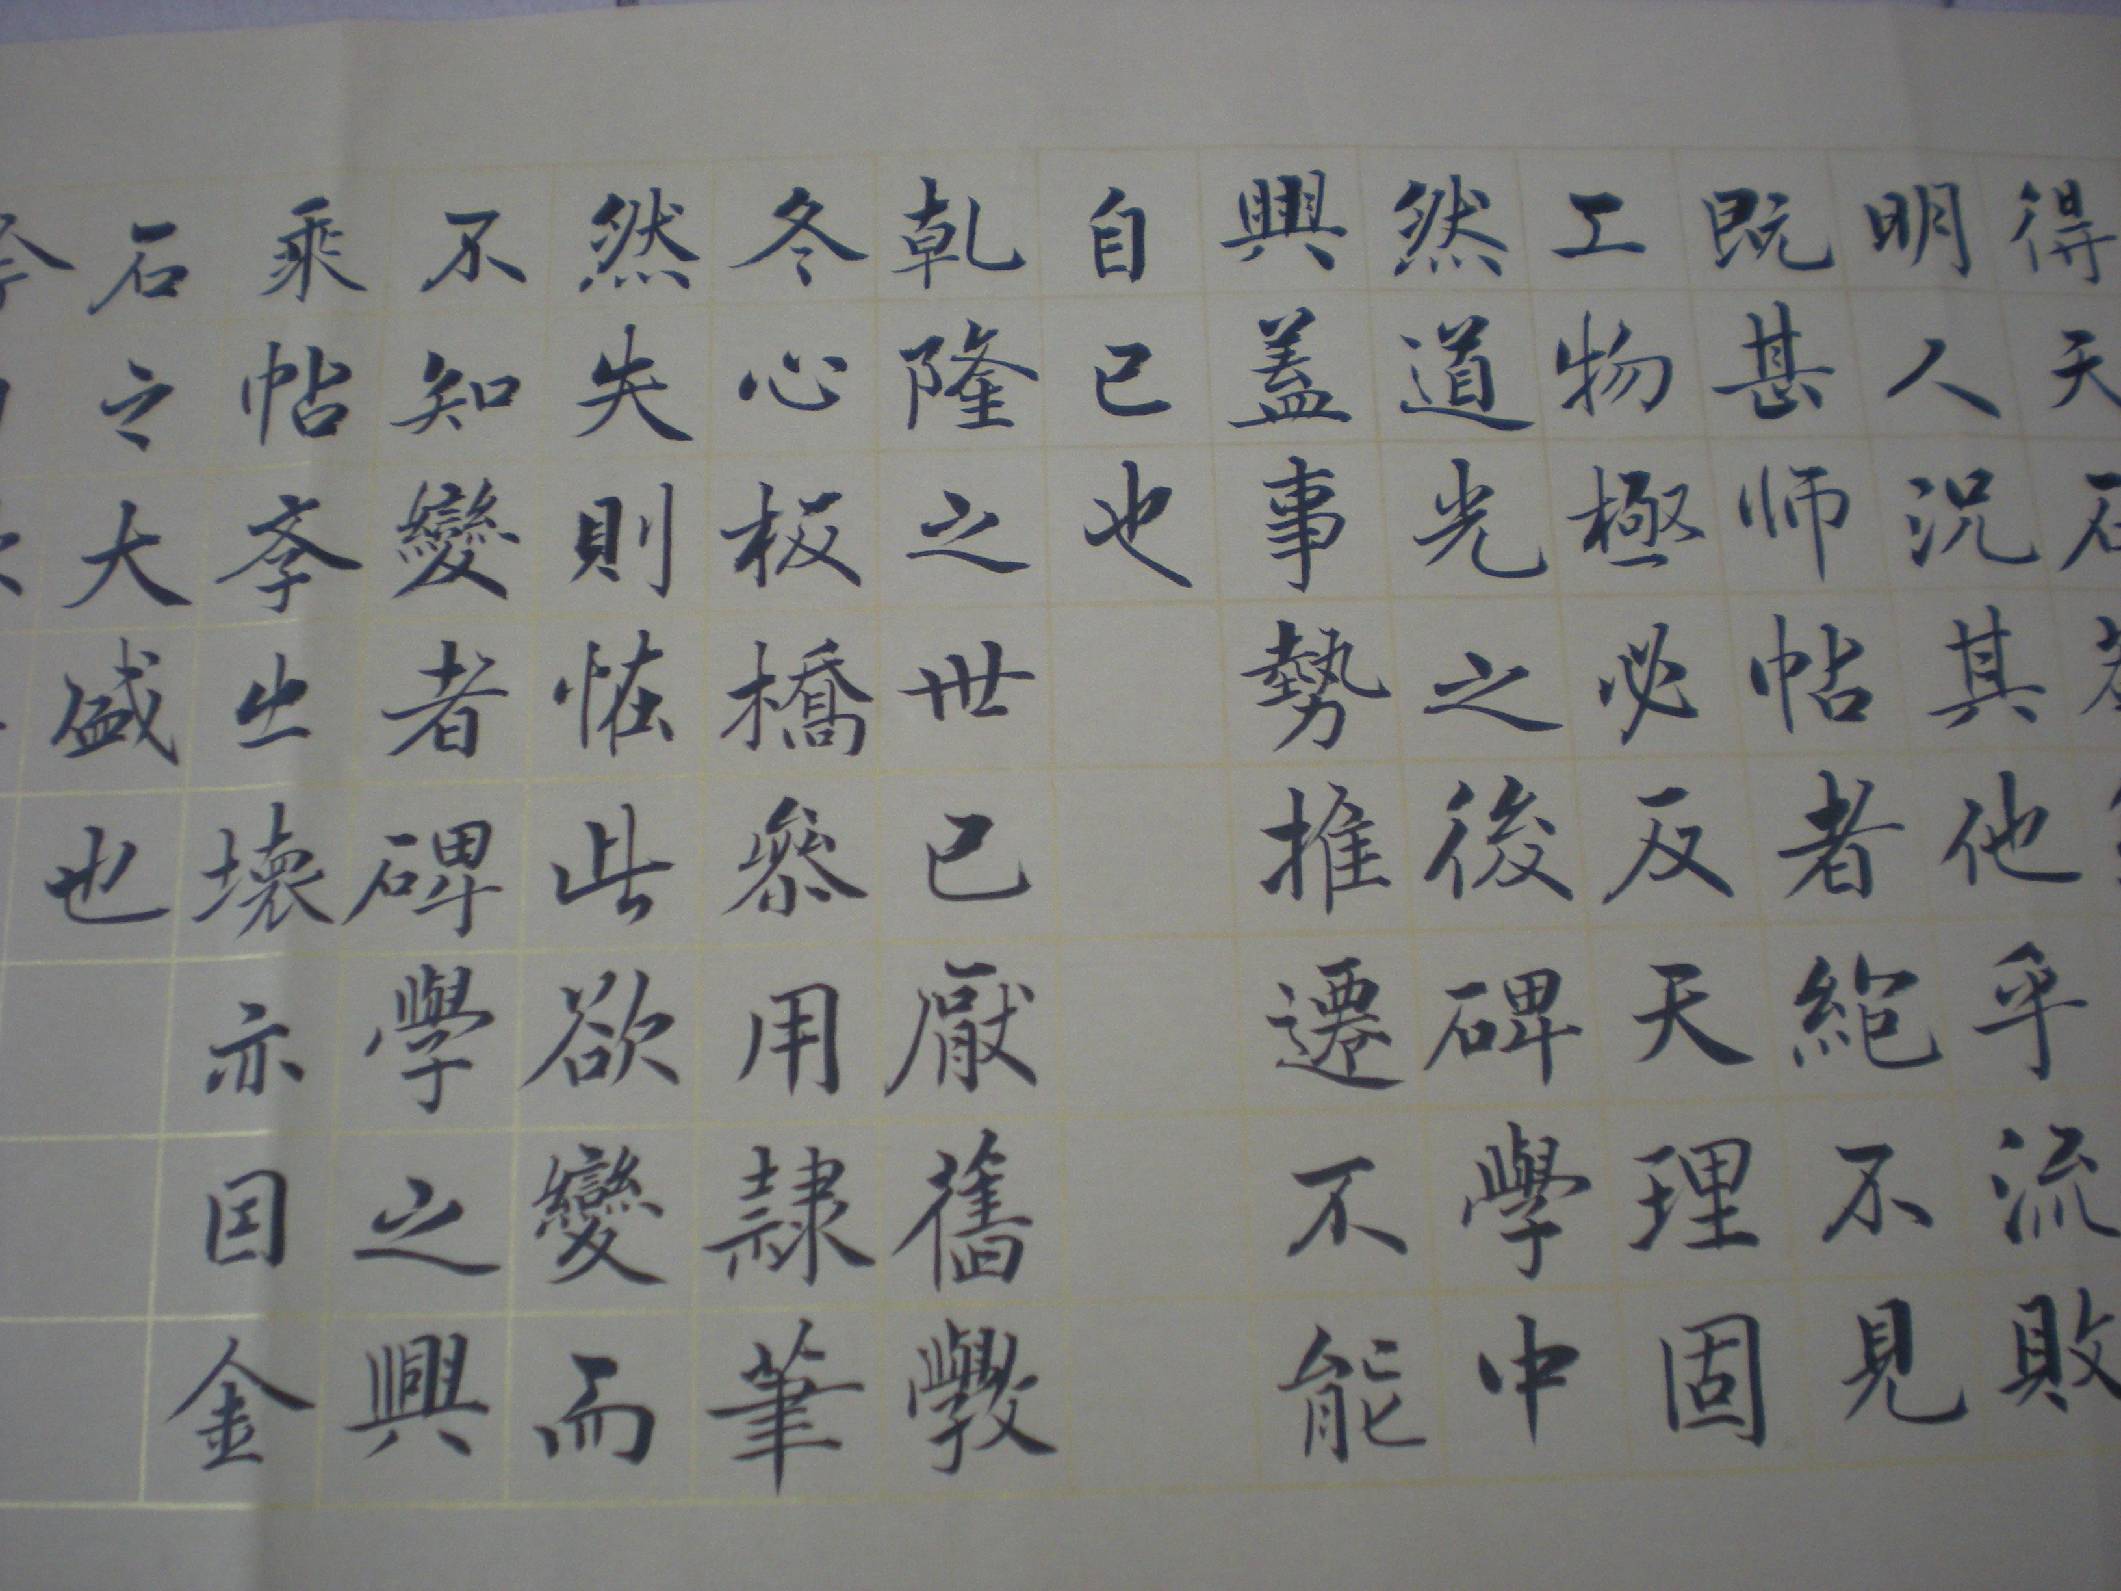 得天石
明人况其他乎流敗
既甚师帖者絶不見
工物極必反天理固
然道光之後碑學中
興蓋事勢推遷不能
自已也
乾隆之世已厭舊斆
冬心板橋參用隸筆
然失則恠此欲變而
不知變者碑學之興
乘帖斈㞢壞亦因金
石之大盛也